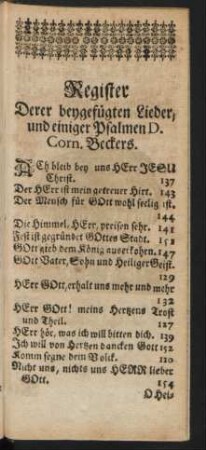 Register
Derer beygefügten Lieder,
und einiger Psalmen D.
Corn. Beckers.
ACh bleib bey uns HErr JESU
Christ. 137
Der HErr ist mein getreuer Hirt. 143
Der Mensch für GOtt wohl seelig ist.
144
Die Himmel, HErr, preisen sehr. 141
Fest ist gegründet GOttes Stadt. 151
GOtt gieb dem König auserkohrn. 147
GOtt Vater, Sohn und Heiliger Geist.
129
HErr GOtt, erhalt uns mehr und mehr
132
HErr GOtt! meins Hertzens Trost
und Theil. 127
HErr hör, was ich will bitten dich. 139
Ich will von Hertzen dancken Gott 152
Komm segne dein Volck. 110
Nicht uns, nichts uns HERR lieber
GOtt. 154
O Hei-